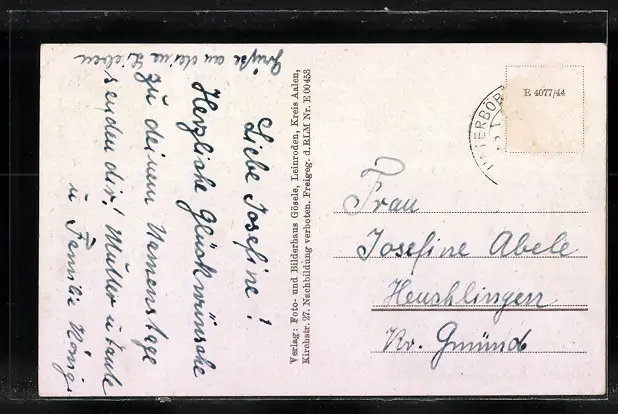 Liebe Josefine!
Herzliche Glückwünsche
zu deinem Namenstage
senden dir! Mutter u Tante
u Familie König.
Grüße an deine Lieben
Verlag: Foto- und Bilderhaus Gösele, Leinroden, Kreis Aalen,
Kirchstr. 27. Nachbildung verboten. Freigeg. d. RLM Nr. E 00453
UNTERBÖB
E 4077/44
Frau
Josefine Abele
Heuchlingen
Kr. Gmünd